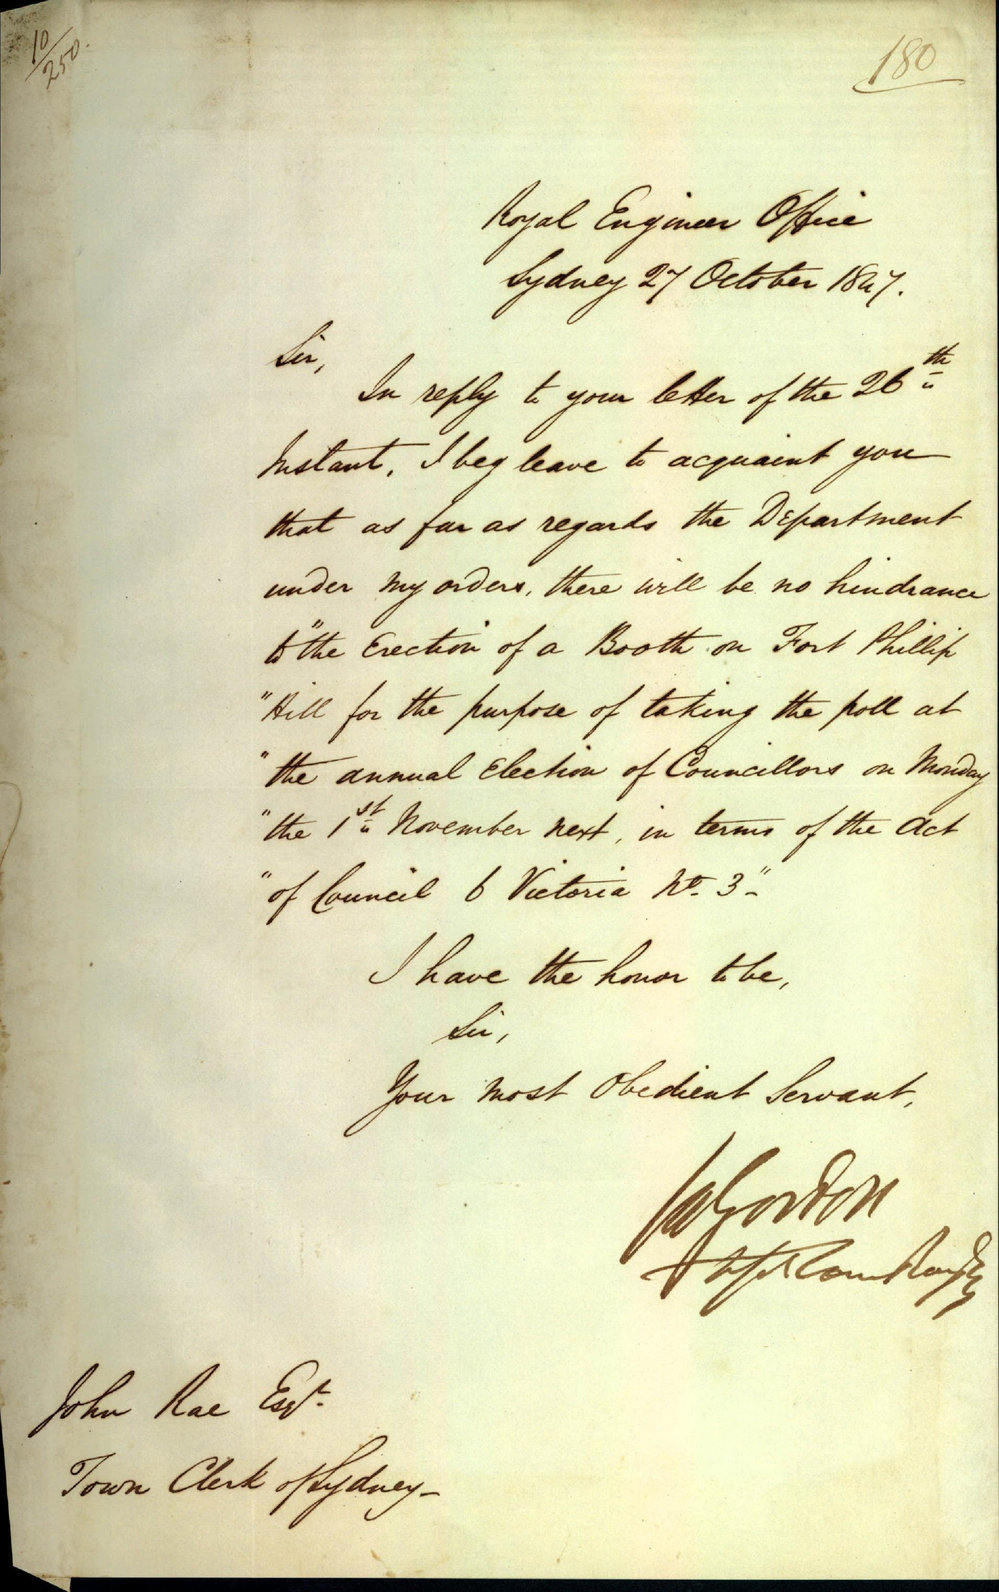 10/250.
180
Royal Engineer Office
Sydney 27 October 1847.
Sir,
In reply to your letter of the 26th
Instant, I beg leave to acquaint you
that as far as regards the Department
under my orders, there will be no hindrance
to "the Erection of a Booth on Fort Phillip
"Hill for the purpose of taking the poll at
"the annual Election of Councillors on Monday
"the 1st November next, in terms of the Act
"of Council 6 Victoria No. 3"-
I have the honor to be,
Sir,
Your most Obedient Servant,
Gordon
John Rae Esqr.
Town Clerk of Sydney-